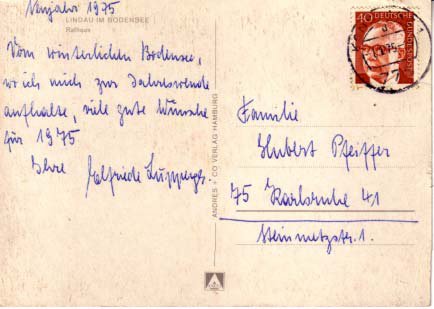 Neujahr 1975
LINDAU IM BODENSEE
Rathaus
Vom winterlichen Bodensee,
wo ich mich zur Jahreswende
aufhalte, viele gute Wünsche
für 1975.
Ihre Elfriede
ANDRES + CO VERLAG HAMBURG
40 DEUTSCHE BUNDESPOST
Familie
Hubert Pfeiffer
75 Karlsruhe 41
Steinmetzstr. 1.